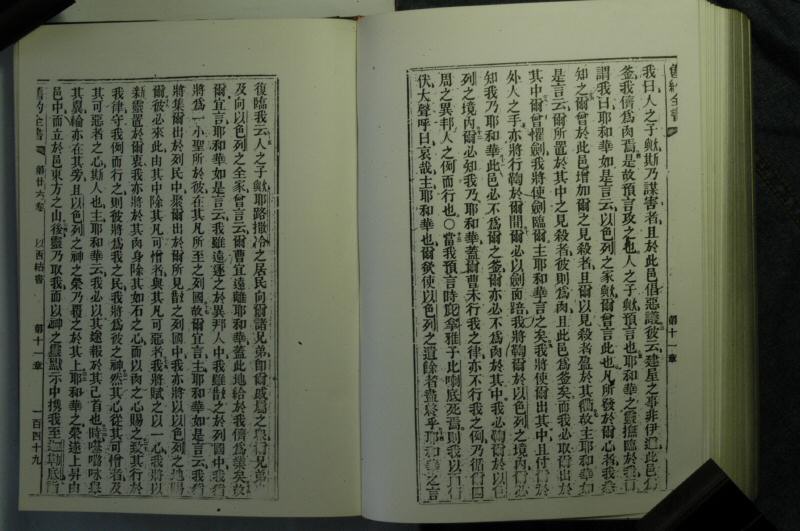 舊約全書
我曰人之子歟斯乃謀害者且於此邑倡惡議彼云建屋之事非伊邇此邑
釜我儕爲肉焉是故預言攻之也人之子歟預言也耶和華之靈撫臨於我
謂我曰耶和華如是言云以色列之家歟爾曾言此也凡所發於爾心者我
知之爾曾於此邑增加爾之見殺者且爾以見殺者盈於其衢故主耶和華
是言云爾所置於其中之見殺者彼則爲肉且此邑爲釜矣而我必取爾出於
其中爾曾懼劍我將使劍臨爾主耶和華言之矣我將使爾出其中且付爾於
外人之手亦將行鞫於爾間爾必以劍面踣我將鞫爾於以色列之境內爾必
知我乃耶和華此邑必不爲爾之釜爾亦必不爲肉於其中我必鞫爾於以色
列之境內爾必知我乃耶和華蓋爾曹未行我之律亦不行我之例乃循爾四
周之異邦人之例而行也○當我預言時
死焉則我以面
伏大聲呼曰哀哉主耶和華也爾欲使以色列之遺餘者盡終乎耶和華之言
第十一章
復臨我云人之子歟耶路撒冷之居民向爾諸兄弟即爾戚屬之
兄弟
及向以色列之全家曾言云爾曹宜遠離耶和華蓋此地給於我儕爲業矣故
爾宜言耶和華如是言云我雖遠逐之於異邦人中我雖散之於列國中我
將爲一小聖所於彼在其凡所至之列國故爾宜言主耶和華如是言云我
將集爾出於列民中聚爾出於爾所見散之列國中我亦將以以色列之地賜
爾彼必來此由其中除其凡可憎者與其凡可惡者我將賦之以一心我將以
新靈置於爾衷我亦將於其肉身除其如石之心而以肉之心賜之致其行於
我律守我例而行之則彼將爲我之民我將爲彼之神然其心從其可憎者及
其可惡者之心斯人也主耶和華云我必以其途報於其己首也時
其翼輪亦在其旁且以色列之神之榮乃覆之於其上耶和華之榮遂上昇由
邑中而立於邑東方之山後靈乃取我而以神之靈默示中攜我至
舊約全書
第廿六卷
以西結書
第十一章
一百四十九